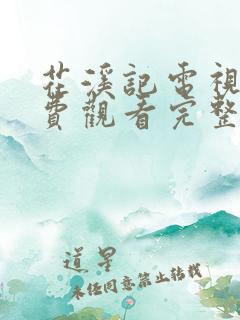 花溪記電視
費觀看完整
道星
未经同意禁止转载